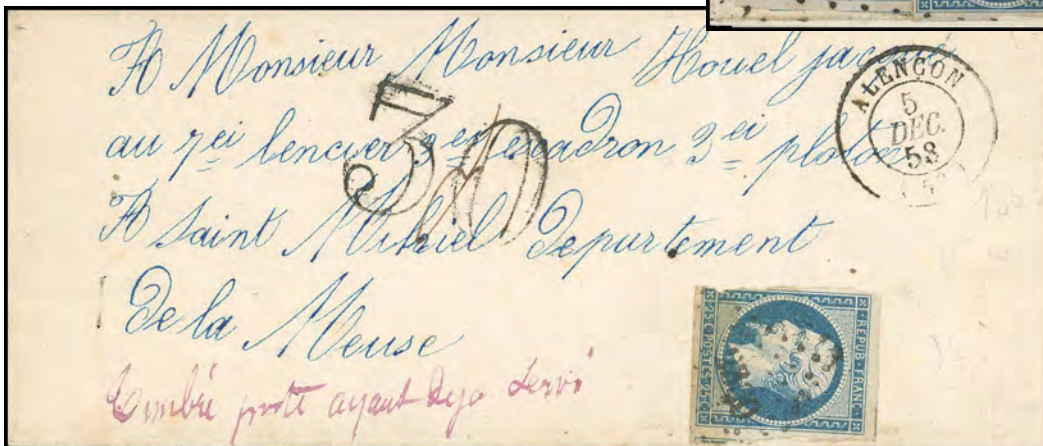 A Monsieur Monsieur Houel jacques
au 7ei lencier 3er escadron 3ei ploton
A Saint Mihiel Departement
De la Meuse
Timbré poste ayant deja servi
30
ALENÇON
5
DEC.
58
25c POSTES 25c
REPUB FRANC